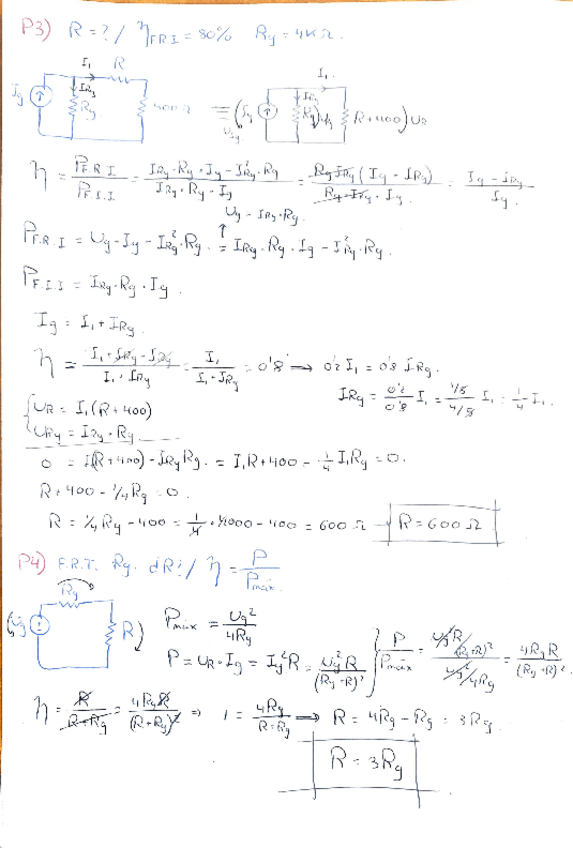 P3) R = ? / η F.R.I = 80% Rg = 4KΩ.
I₁ R
Ig IRg Rg 400Ω ≡ Ig Ug IRg Rg I₁ R+400 UR
η = P F.R.I / P F.I.I = (IRg·Rg·Ig - IRg²·Rg) / (IRg·Rg·Ig) = Rg·IRg (Ig - IRg) / (Rg·IRg·Ig) = (Ig - IRg) / Ig.
Ug = IRg·Rg.
P F.R.I = Ug·Ig - IRg²·Rg = IRg·Rg·Ig - IRg²·Rg.
P F.I.I = IRg·Rg·Ig.
Ig = I₁ + IRg.
η = (I₁ + IRg - IRg) / (I₁ + IRg) = I₁ / (I₁ + IRg) = 0'8 → 0'2 I₁ = 0'8 IRg.
IRg = 0'2/0'8 I₁ = (1/5)/(4/5) I₁ = 1/4 I₁.
UR = I₁(R+400)
URg = IRg·Rg.
0 = I₁(R+400) - IRg Rg = I₁R+400 - 1/4 I₁Rg = 0.
R+400 - 1/4 Rg = 0.
R = 1/4 Rg - 400 = 1/4 · 4000 - 400 = 600 Ω → R = 600 Ω
P4) F.R.T. Rg. ¿R? / η = P / Pmáx.
Rg
Ug R
Pmáx = Ug² / 4Rg
P = UR·Ig = Ig²R = Ug²R / (Rg+R)²
P / Pmáx = (Ug²R / (Rg+R)²) / (Ug² / 4Rg) = 4RgR / (Rg+R)².
η = R / (R+Rg) = 4RgR / (R+Rg)² ⇒ 1 = 4Rg / (R+Rg) → R = 4Rg - Rg = 3Rg.
R = 3Rg